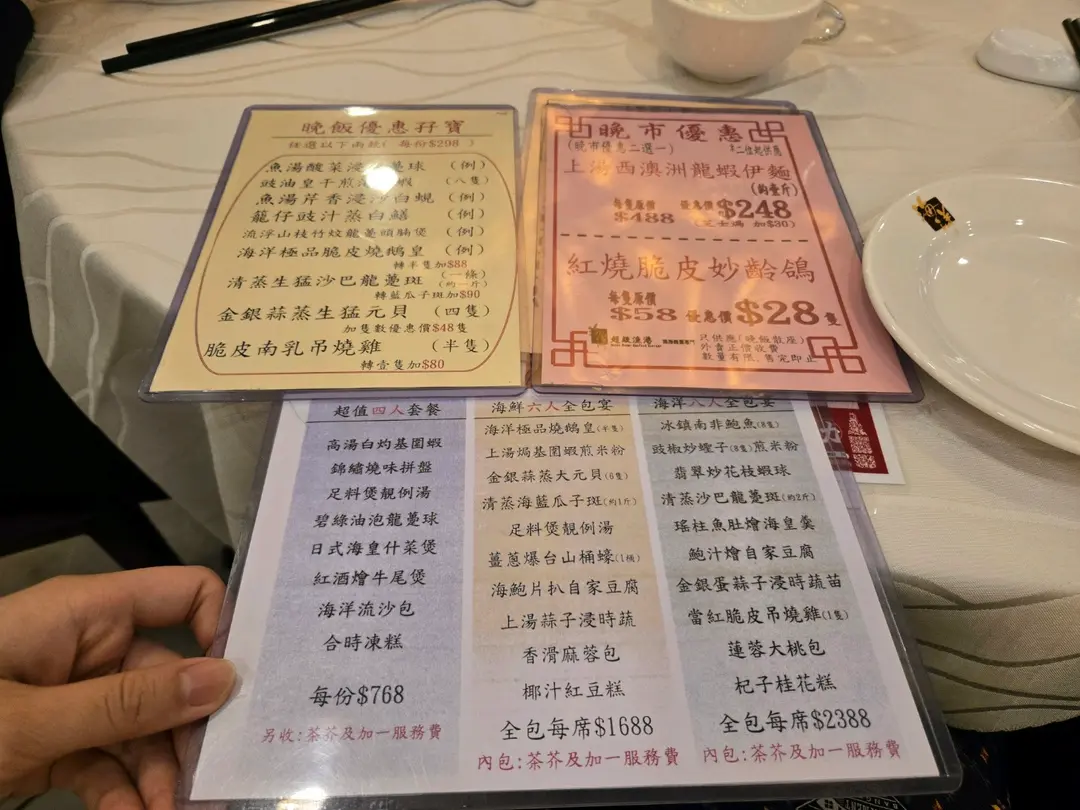 晚飯優惠孖寶
任選以下兩款( 每份$298 )
魚湯酸菜浸 球 (例)
豉油皇干煎 蝦 (八隻)
魚湯芹香浸沙白蜆 (例)
籠仔豉汁蒸白鱔 (例)
流浮山枝竹炆龍躉頭腩煲 (例)
海洋極品脆皮燒鵝皇 (例)
轉半隻加$88
清蒸生猛沙巴龍躉斑 (一條)(約一斤)
轉藍瓜子斑加$90
金銀蒜蒸生猛元貝 (四隻)
加隻數優惠價$48隻
脆皮南乳吊燒雞 (半隻)
轉壹隻加$80
晚市優惠
(晚市優惠二選一) 二位起供應
上湯西澳洲龍蝦伊麵
(約壹斤)
每隻原價 $488 優惠價$248
(芝士焗 加$30)
紅燒脆皮妙齡鴿
每隻原價 $58 優惠價$28隻
超級漁港
只供應(晚飯散座)
外賣正價收費
數量有限,售完即止
超值四人套餐
高湯白灼基圍蝦
錦繡燒味拼盤
足料煲靚例湯
碧綠油泡龍躉球
日式海皇什菜煲
紅酒燴牛尾煲
海洋流沙包
合時凍糕
每份$768
另收:茶芥及加一服務費
海鮮六人全包宴
海洋極品燒鵝皇(半隻)
上湯焗基圍蝦煎米粉
金銀蒜蒸大元貝(6隻)
清蒸海藍瓜子斑(約1斤)
足料煲靚例湯
薑蔥爆台山桶蠔(1桶)
海鮑片扒自家豆腐
上湯蒜子浸時蔬
香滑麻蓉包
椰汁紅豆糕
全包每席$1688
內包:茶芥及加一服務費
海洋八人全包宴
冰鎮南非鮑魚(8隻)
豉椒炒蟶子(8隻)煎米粉
翡翠炒花枝蝦球
清蒸沙巴龍躉斑(約2斤)
瑤柱魚肚燴海皇羹
鮑汁燴自家豆腐
金銀蛋蒜子浸時蔬苗
當紅脆皮吊燒雞(1隻)
蓮蓉大桃包
杞子桂花糕
全包每席$2388
內包:茶芥及加一服務費